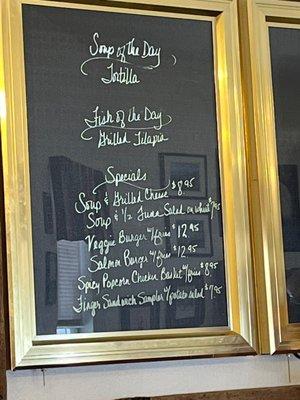 Soup of the Day
Tortilla
Fish of the Day
Grilled Tilapia
Specials
Soup & Grilled Cheese $8.95
Soup & 1/2 Tuna Salad on Wheat $7.95
Veggie Burger w/fries $12.95
Salmon Burger w/fries $12.95
Spicy Popcorn Chicken Basket w/fries $8.95
Finger Sandwich Sampler w/potato salad $7.95